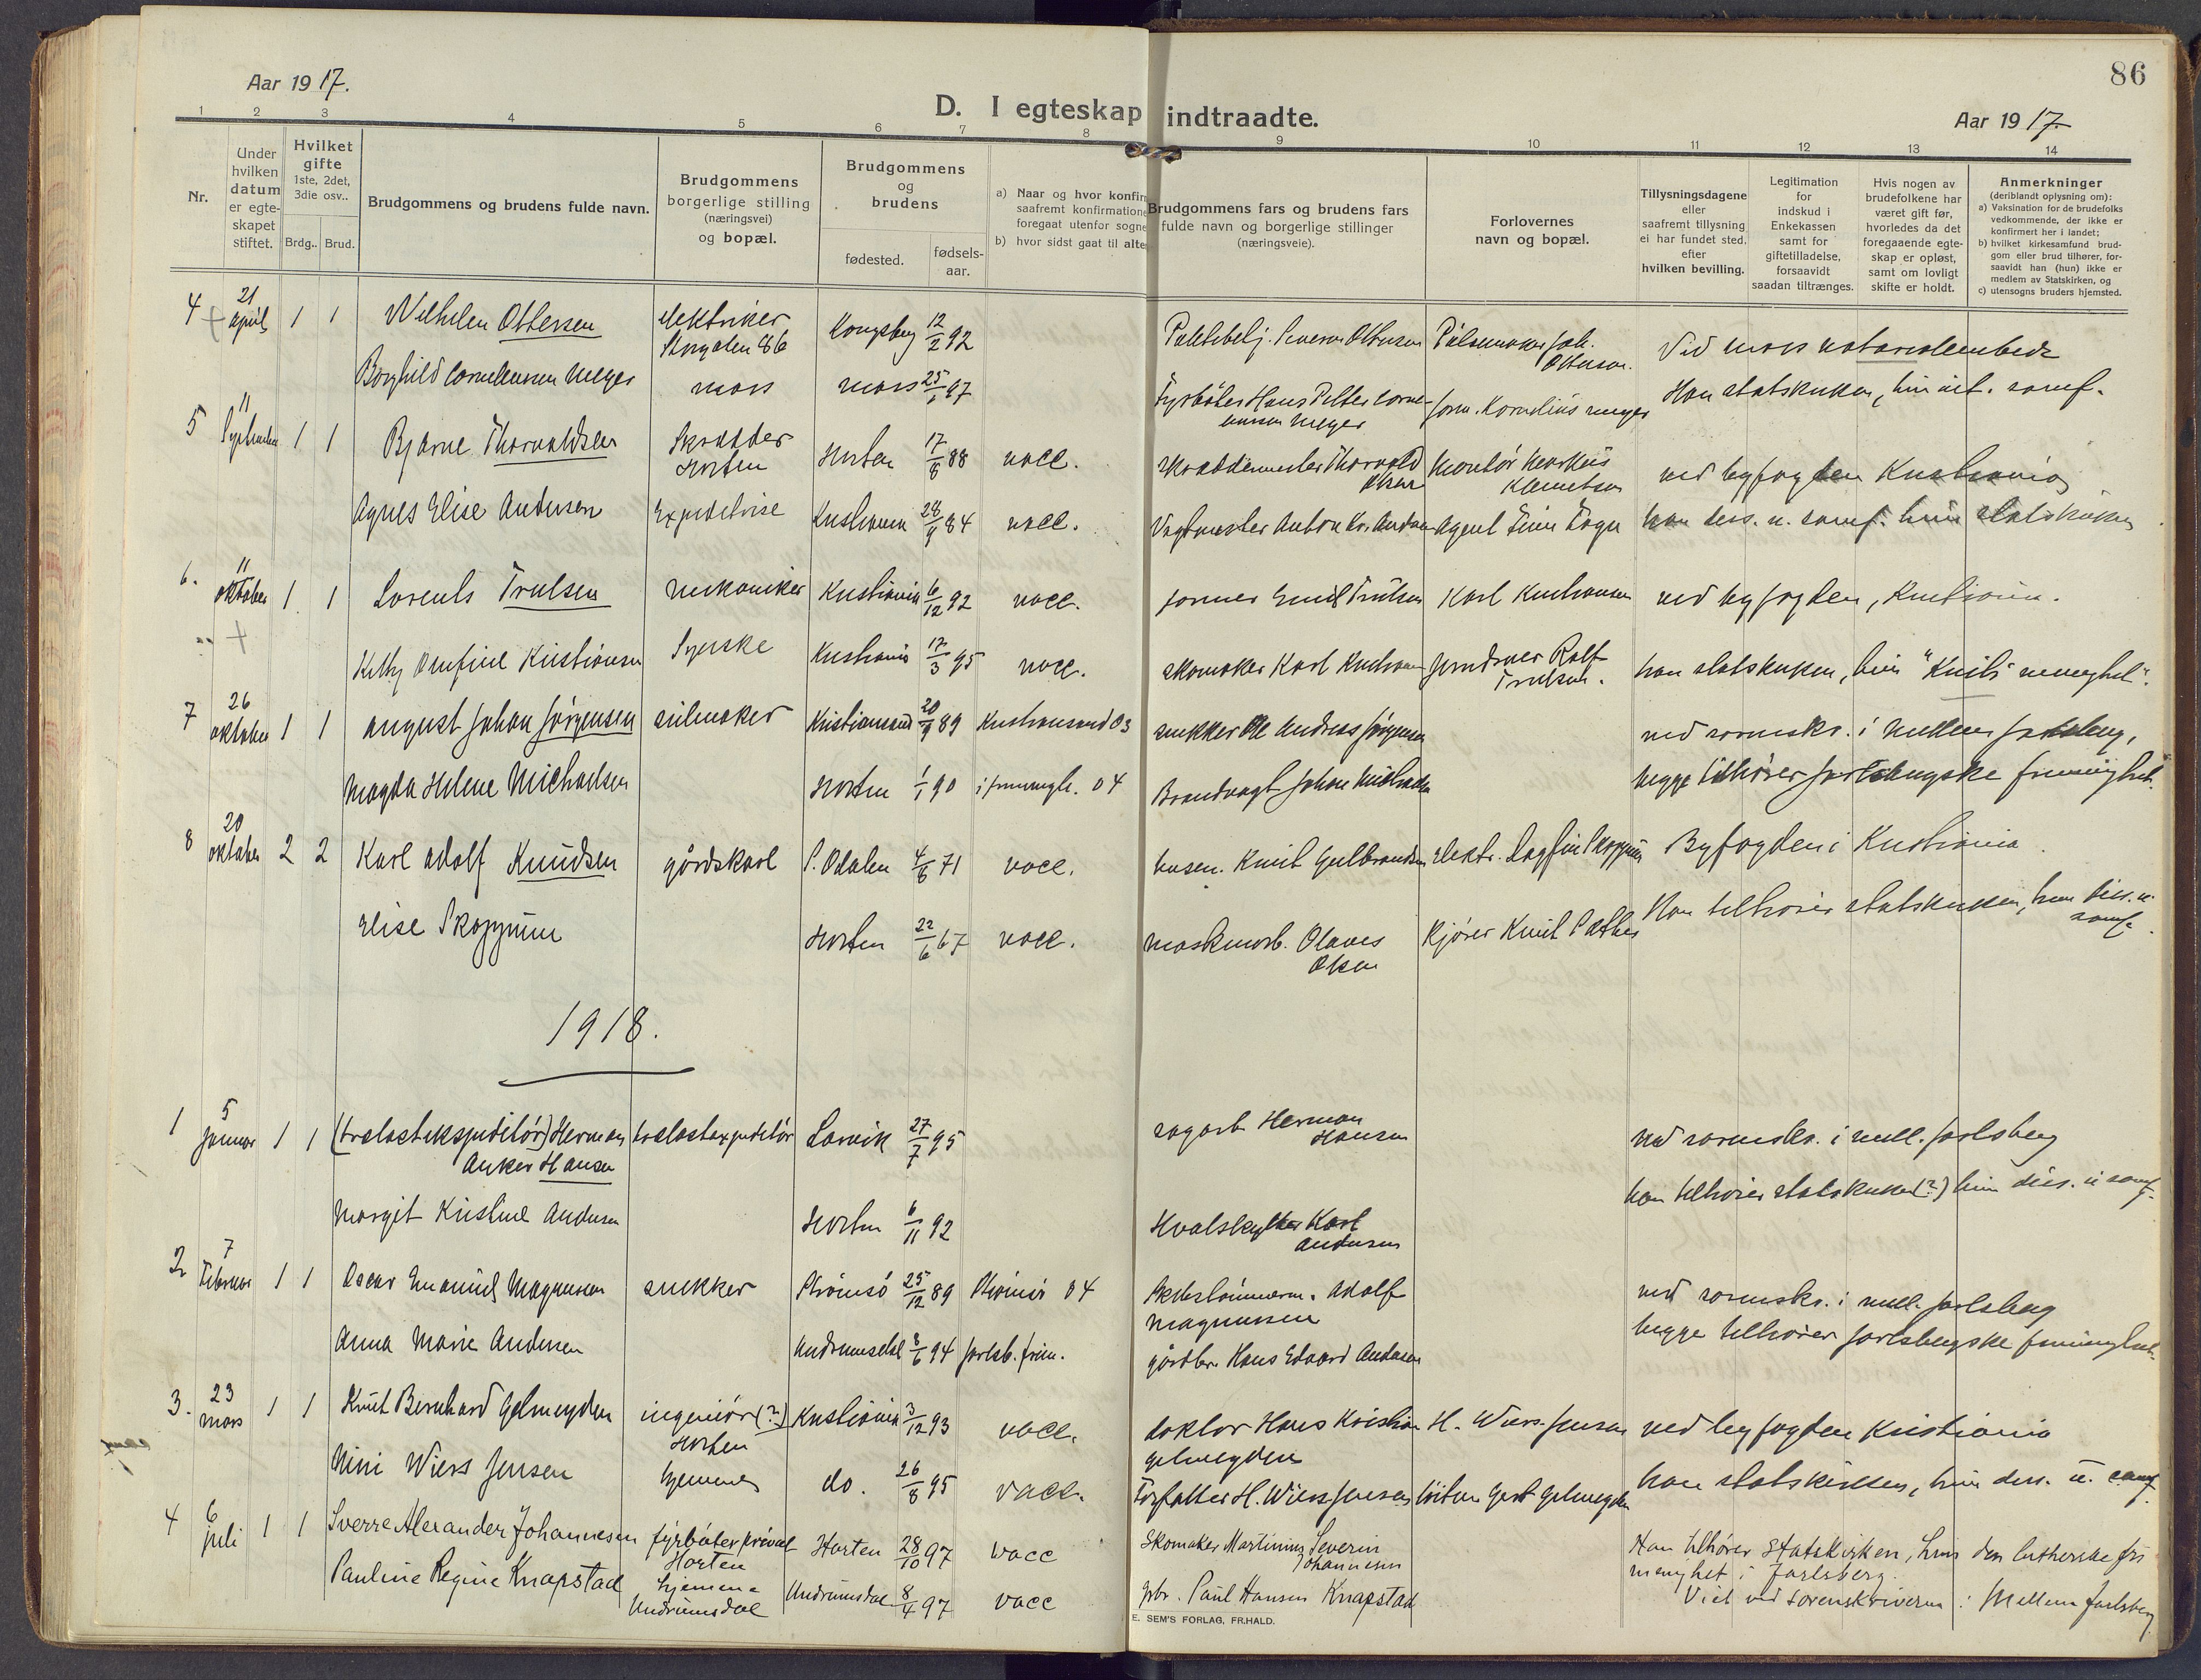 86
Aar 1917.
D. I egteskap indtraadte.
Aar 1917.
1 2 3 4 5 6 7 8 9 10 11 12 13 14
Nr.
Under hvilken datum er egteskapet stiftet.
Hvilket gifte 1ste, 2det, 3die osv..
Brdg.. Brud.
Brudgommens og brudens fulde navn.
Brudgommens borgerlige stilling (næringsvei) og bopæl.
Brudgommens og brudens
fødested. fødsels-aar.
a) Naar og hvor konfir
saafremt konfirmatione
foregaat utenfor sogne
b) hvor sidst gaat til alte
Brudgommens fars og brudens fars
fulde navn og borgerlige stillinger
(næringsveie).
Forlovernes
navn og bopæl.
Tillysningsdagene
eller
saafremt tillysning
ei har fundet sted,
efter
hvilken bevilling.
Legitimation
for
indskud i
Enkekassen
samt for
giftetilladelse,
forsaavidt
saadan tiltrænges.
Hvis nogen av
brudefolkene har
været gift før,
hvorledes da det
foregaaende egte-
skap er opløst,
samt om lovligt
skifte er holdt.
Anmerkninger
(deriblandt oplysning om):
a) Vaksination for de brudefolks
vedkommende, der ikke er
konfirmert her i landet;
b) hvilket kirkesamfund brud-
gom eller brud tilhører, for-
saavidt han (hun) ikke er
medlem av Statskirken, og
c) utensogns bruders hjemsted.
4 21 april 1 1 Wilhelm Ottersen elektriker Storgaten 86 Kongsberg 12/2 92
Ved moss notarialembede
Borghild Corneliussen Meyer moss moss 97 Han statskirken, hun
5 11 September 1 1 Bjarne Thorvaldsen Skrædder Horten Horten 17/8 88 vacc. Skræddermester Thorvald Olsen ved byfogden Kristiania
Agnes Elise Andersen Expeditrise Kristiania 84 vacc. Agent han diss. u. samf. hun statskirken
6. 11 oktober 1 1 Lorents Trulsen mekaniker Kristiania 6/12 92 vacc. former Emil Trulsen Karl Kristiansen ved byfogden, Kristiania.
Kristiansen Syerske Kristiania 17/3 95 vacc. skomaker Karl Kristiansen Rolf Trulsen. han statskirken, hun
7 26 oktober 1 1 August Johan Jörgensen seilmaker Kristiansand 89 Kristiansand 03 snekker Ole Andreas Jörgensen ved sorenskr. i Mellem Jarlsberg,
Magda Helene Michaelsen Horten 1/1 90 i frimengh. 04 Brandvagt Johan Michaelsen begge tilhører Jarlsbergske frimenighet.
8 20 oktober 2 2 Karl Adolf Knudsen gårdskarl S. Odalen 71 vacc. husm. Knut Gulbrandsen elektr. Dagfin Skoppum Byfogden i Kristiania
Elise Skoppum Horten 22/6 67 vacc. maskinarb. Olaves Olsen Kjører Knut Sæther Han tilhører statskirken, hun diss. u. samf.
1918.
1 5 januar 1 1 (trælastekspeditör) Herman Anker Hansen trælastexpeditör Larvik 27/7 95 sagarb. Herman Hansen ved sorenskr. i mell. Jarlsberg
han tilhører statskirken (?) hun diss. u samf.
Margit Kristine Andersen Horten 6/11 92 Hvalskytter Karl Andersen
2 7 Februar 1 1 Oscar Emanuel Magnussen snekker Strömsö 25/12 89 Strömsö 04 Adolf Magnussen ved sorenskr. i mell. Jarlsberg
Anna Marie Andersen Undrumsdal 94 Jarlsb. frim. gårdbr. Hans Edvard Andersen begge tilhører Jarlsbergske frimenighet
3. 23 mars 1 1 Knut Bernhard Gelmeyden ingeniör (?) Horten Kristiania 3/12 93 vacc. doktor Hans Kristian Gelmeyden H. Wiers-Jensen ved byfogden Kristiania
Nini Wiers Jensen hjemme do. 26/8 95 vacc. Forfatter H. Wiers Jensen Gert Gelmeyden han statskirken, hun diss. u. samf.
4 6 juli 1 1 Sverre Alexander Johannesen fyrböter privat Horten Horten 28/10 97 vacc Skomaker Martinius Severin Johannesen Han tilhører Statskirken, hun den lutherske fri
menighet i Jarlsberg.
Pauline Regine Knapstad hjemme Undrumsdal Undrumsdal 8/4 97 vacc gbr. Paul Hansen Knapstad Viet ved Sorenskriveren i Mellem Jarlsberg
E. SEM'S FORLAG, FR.HALD.